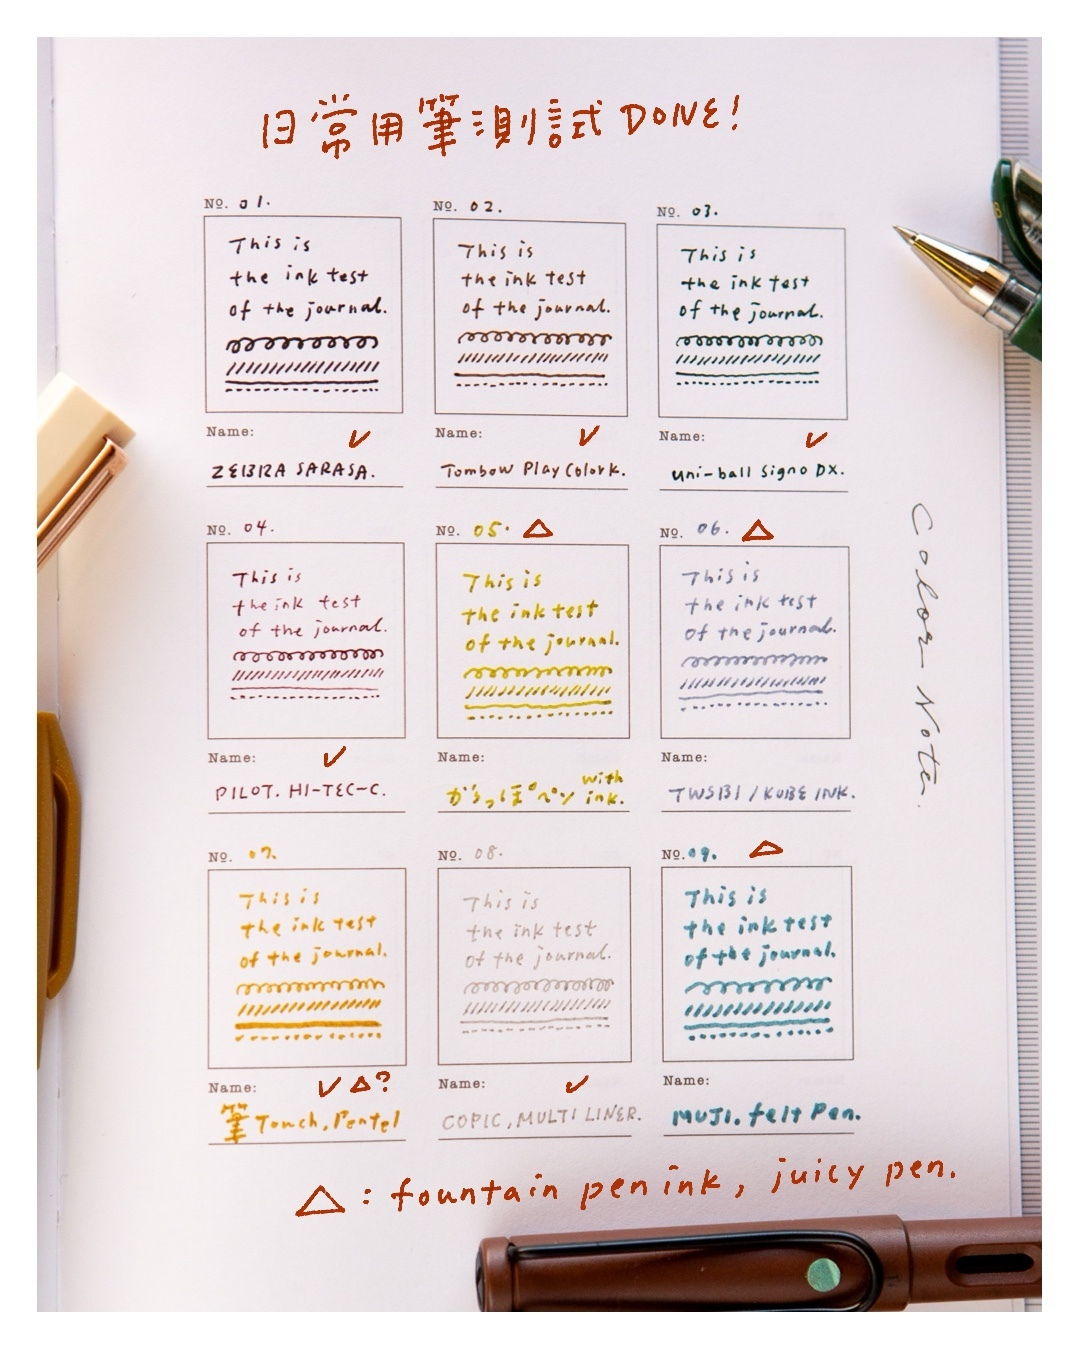 日常用筆測試 DONE!
No. 01.
This is
the ink test
of the journal.
Name: ✓
ZEBRA SARASA.
No. 02.
This is
the ink test
of the journal.
Name: ✓
Tombow Play Color K.
No. 03.
This is
the ink test
of the journal.
Name: ✓
uni-ball Signo DX.
No. 04.
This is
the ink test
of the journal.
Name: ✓
PILOT. HI-TEC-C.
No. 05. △
This is
the ink test
of the journal.
Name:
からっぽペン with
ink.
No. 06. △
This is
the ink test
of the journal.
Name:
TWSBI / KOBE INK.
No. 07.
This is
the ink test
of the journal.
Name: ✓ △?
筆 Touch, Pentel
No. 08.
This is
the ink test
of the journal.
Name: ✓
COPIC, MULTI LINER.
No. 09. △
This is
the ink test
of the journal.
Name:
MUJI. felt Pen.
Color Note.
△: fountain pen ink, juicy pen.